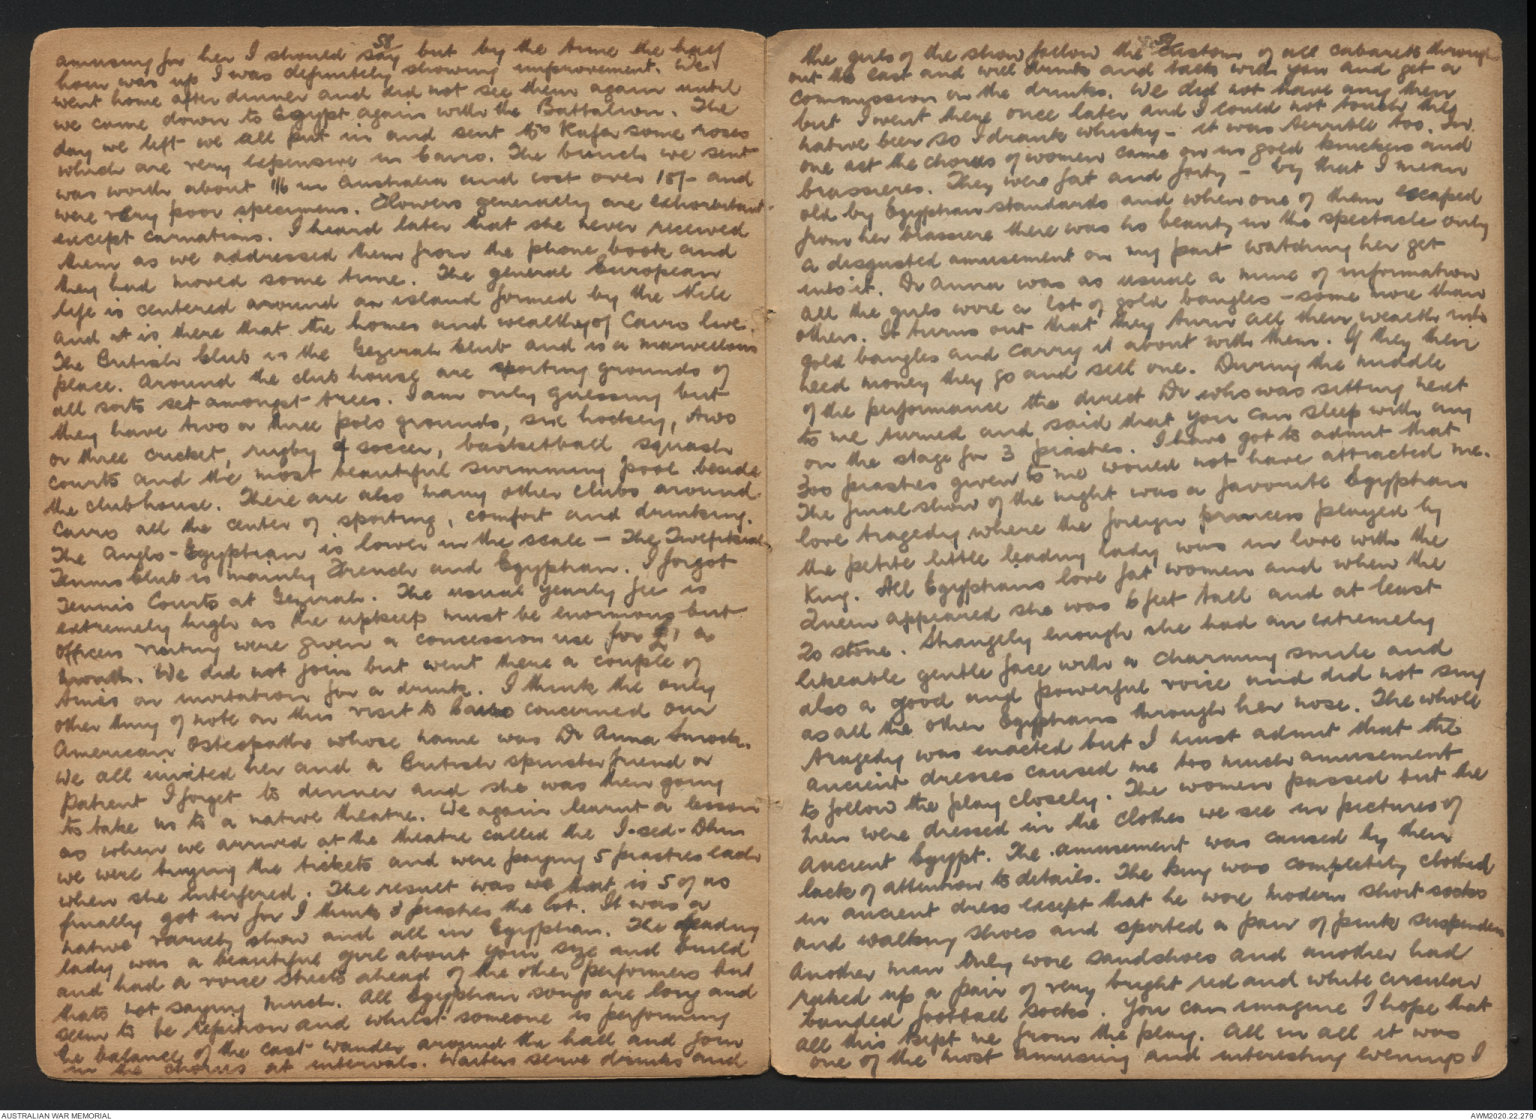 58
amusing for her I should say but by the time the half
hour was up I was definitely showing improvement. We
went home after dinner and did not see them again until
we came down to Egypt again with the Battalion. The
day we left we all put in and sent to Kafa some roses
which are very expensive in Cairo. The bunch we sent
was worth about 1/6 in Australia and cost over 15/- and
were very poor specimens. Flowers generally are exhorbitant
except carnations. I heard later that she never received
them as we addressed them from the phone book and
they had moved some time. The general European
life is centered around an island formed by the Nile
and it is there that the homes and wealthy of Cairo live.
The British Club is the Gezerah Club and is a marvellous
place. Around the club house are sporting grounds of
all sorts set amongst trees. I am only guessing but
they have two or three polo grounds, six hockey, two
or three cricket, rugby & soccer, basketball squash
courts and the most beautiful swimming pool beside
the clubhouse. There are also many other clubs around
Cairo all the center of sporting, comfort and drinking.
The Anglo-Egyptian is lower in the scale - The
Tennis Club is mainly French and Egyptian. I forgot
Tennis Courts at Gezerah. The usual yearly fee is
extremely high as the upkeep must be enormous but
officers visiting were given a concession use for £1 a
month. We did not join but went there a couple of
times on invitation for a drink. I think the only
other thing of note on this visit to Cairo concerned our
American Osteopath whose name was Dr Anna
We all invited her and a British spinster friend or
patient I forget to dinner and she was then going
to take us to a native theatre. We again learnt a lesson
as when we arrived at the theatre called the
we were buying the tickets and were paying 5 piastres each
when she interfered. The result was we that is 5 of us
finally got in for I think 8 piastres the lot. It was a
native variety show and all in Egyptian. The leading
lady was a beautiful girl about your size and build
and had a voice streets ahead of the other performers but
thats not saying much. All Egyptian songs are long and
seem to be repition and whilst someone is performing
the balance of the cast wander around the hall and join
in the chorus at intervals. Waiters serve drinks and
59
the girls of the show follow the custom of all cabarets through
out the east and will drink and talk with you and get a
commission on the drinks. We did not have any then
but I went there once later and I could not touch the
native beer so I drank whisky - it was terrible too. In
one act the chorus of women came on in gold knickers and
brassieres. They were fat and forty - by that I mean
old by Egyptian standards and when one of them escaped
from her brassiere there was no beauty in the spectacle only
a disgusted amusement on my part watching her get
into it. Dr Anna was as usual a mine of information
all the girls wore a lot of gold bangles - some more than
others. It turns out that they turn all their wealth into
gold bangles and carry it about with them. If they then
need money they go and sell one. During the middle
of the performance the direct Dr who was sitting next
to me turned and said that you can sleep with any
on the stage for 3 piastres. I have got to admit that
300 piastres given to me would not have attracted me.
The final show of the night was a favourite Egyptian
love tragedy where the foreign princess played by
the petite little leading lady was in love with the
King. All Egyptians love fat women and when the
Queen appeared she was 6 feet tall and at least
20 stone. Strangely enough she had an extremely
likeable gentle face with a charming smile and
also a good and powerful voice and did not sing
as all the other Egyptians through her nose. The whole
tragedy was enacted but I must admit that the
ancient dresses caused me too much amusement
to follow the play closely. The women passed but the
men were dressed in the clothes we see in pictures of
ancient Egypt. The amusement was caused by their
lack of attention to details. The King was completely clothed
in ancient dress except that he wore modern short socks
and walking shoes and sported a pair of pink suspenders
Another man only wore sandshoes and another had
raked up a pair of very bright red and white circular
banded football socks. You can imagine I hope that
all this kept me from the play. All in all it was
one of the most amusing and interesting evenings I
AUSTRALIAN WAR MEMORIAL
AWM2020.22.279